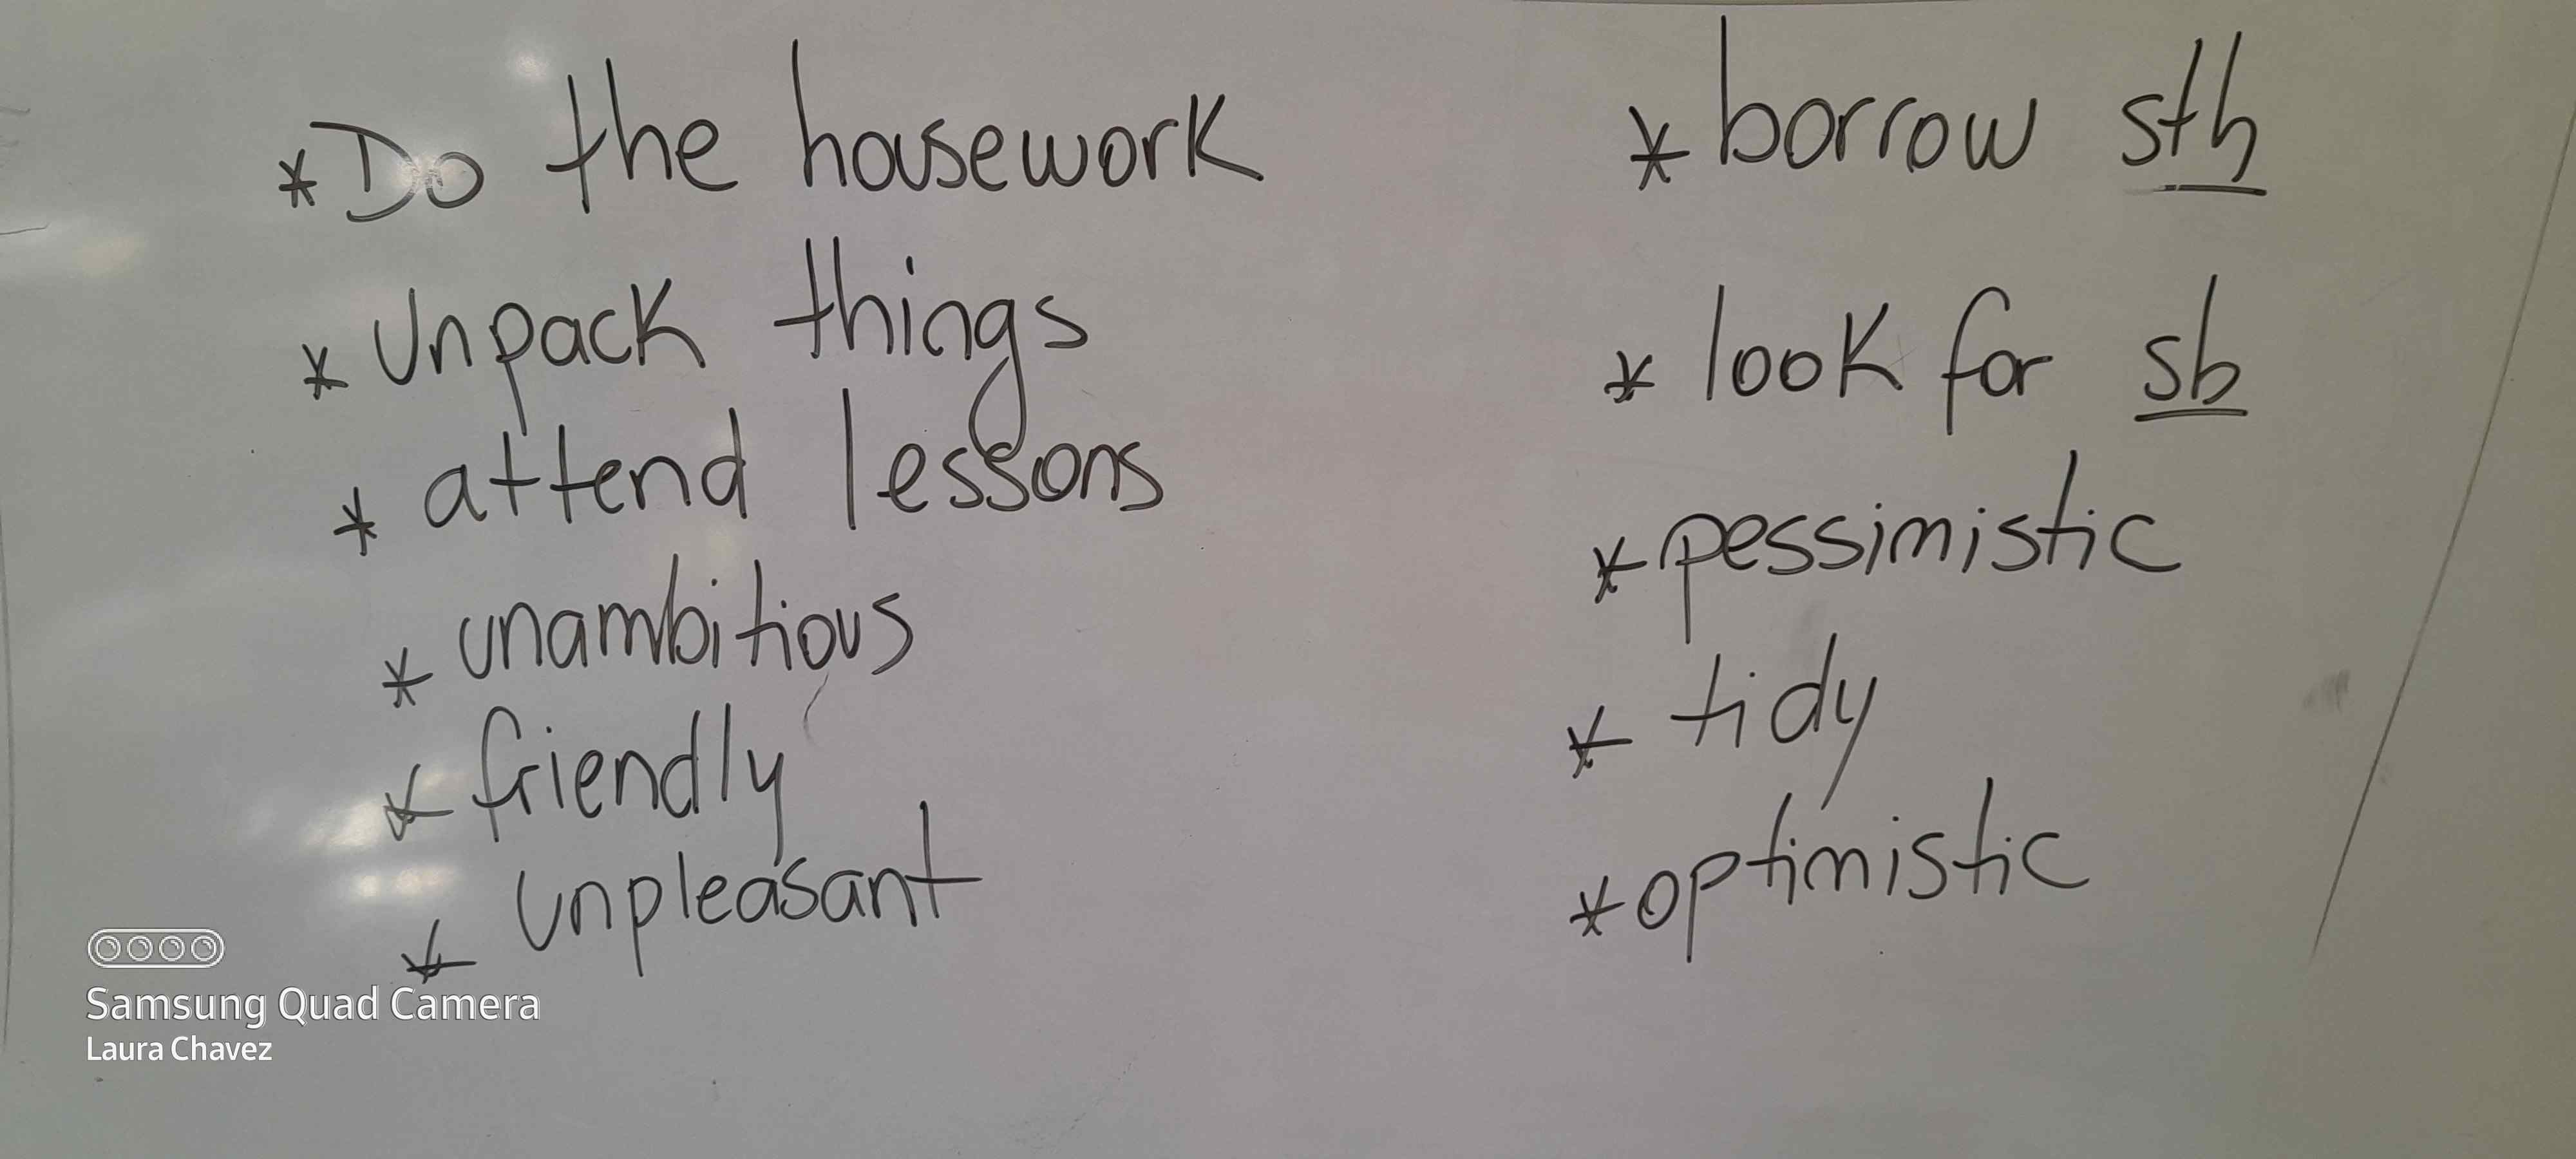 * Do the housework
* Unpack things
* attend lessons
* unambitious
* friendly
* unpleasant
* borrow sth
* look for sb
* pessimistic
* tidy
* optimistic
Samsung Quad Camera
Laura Chavez